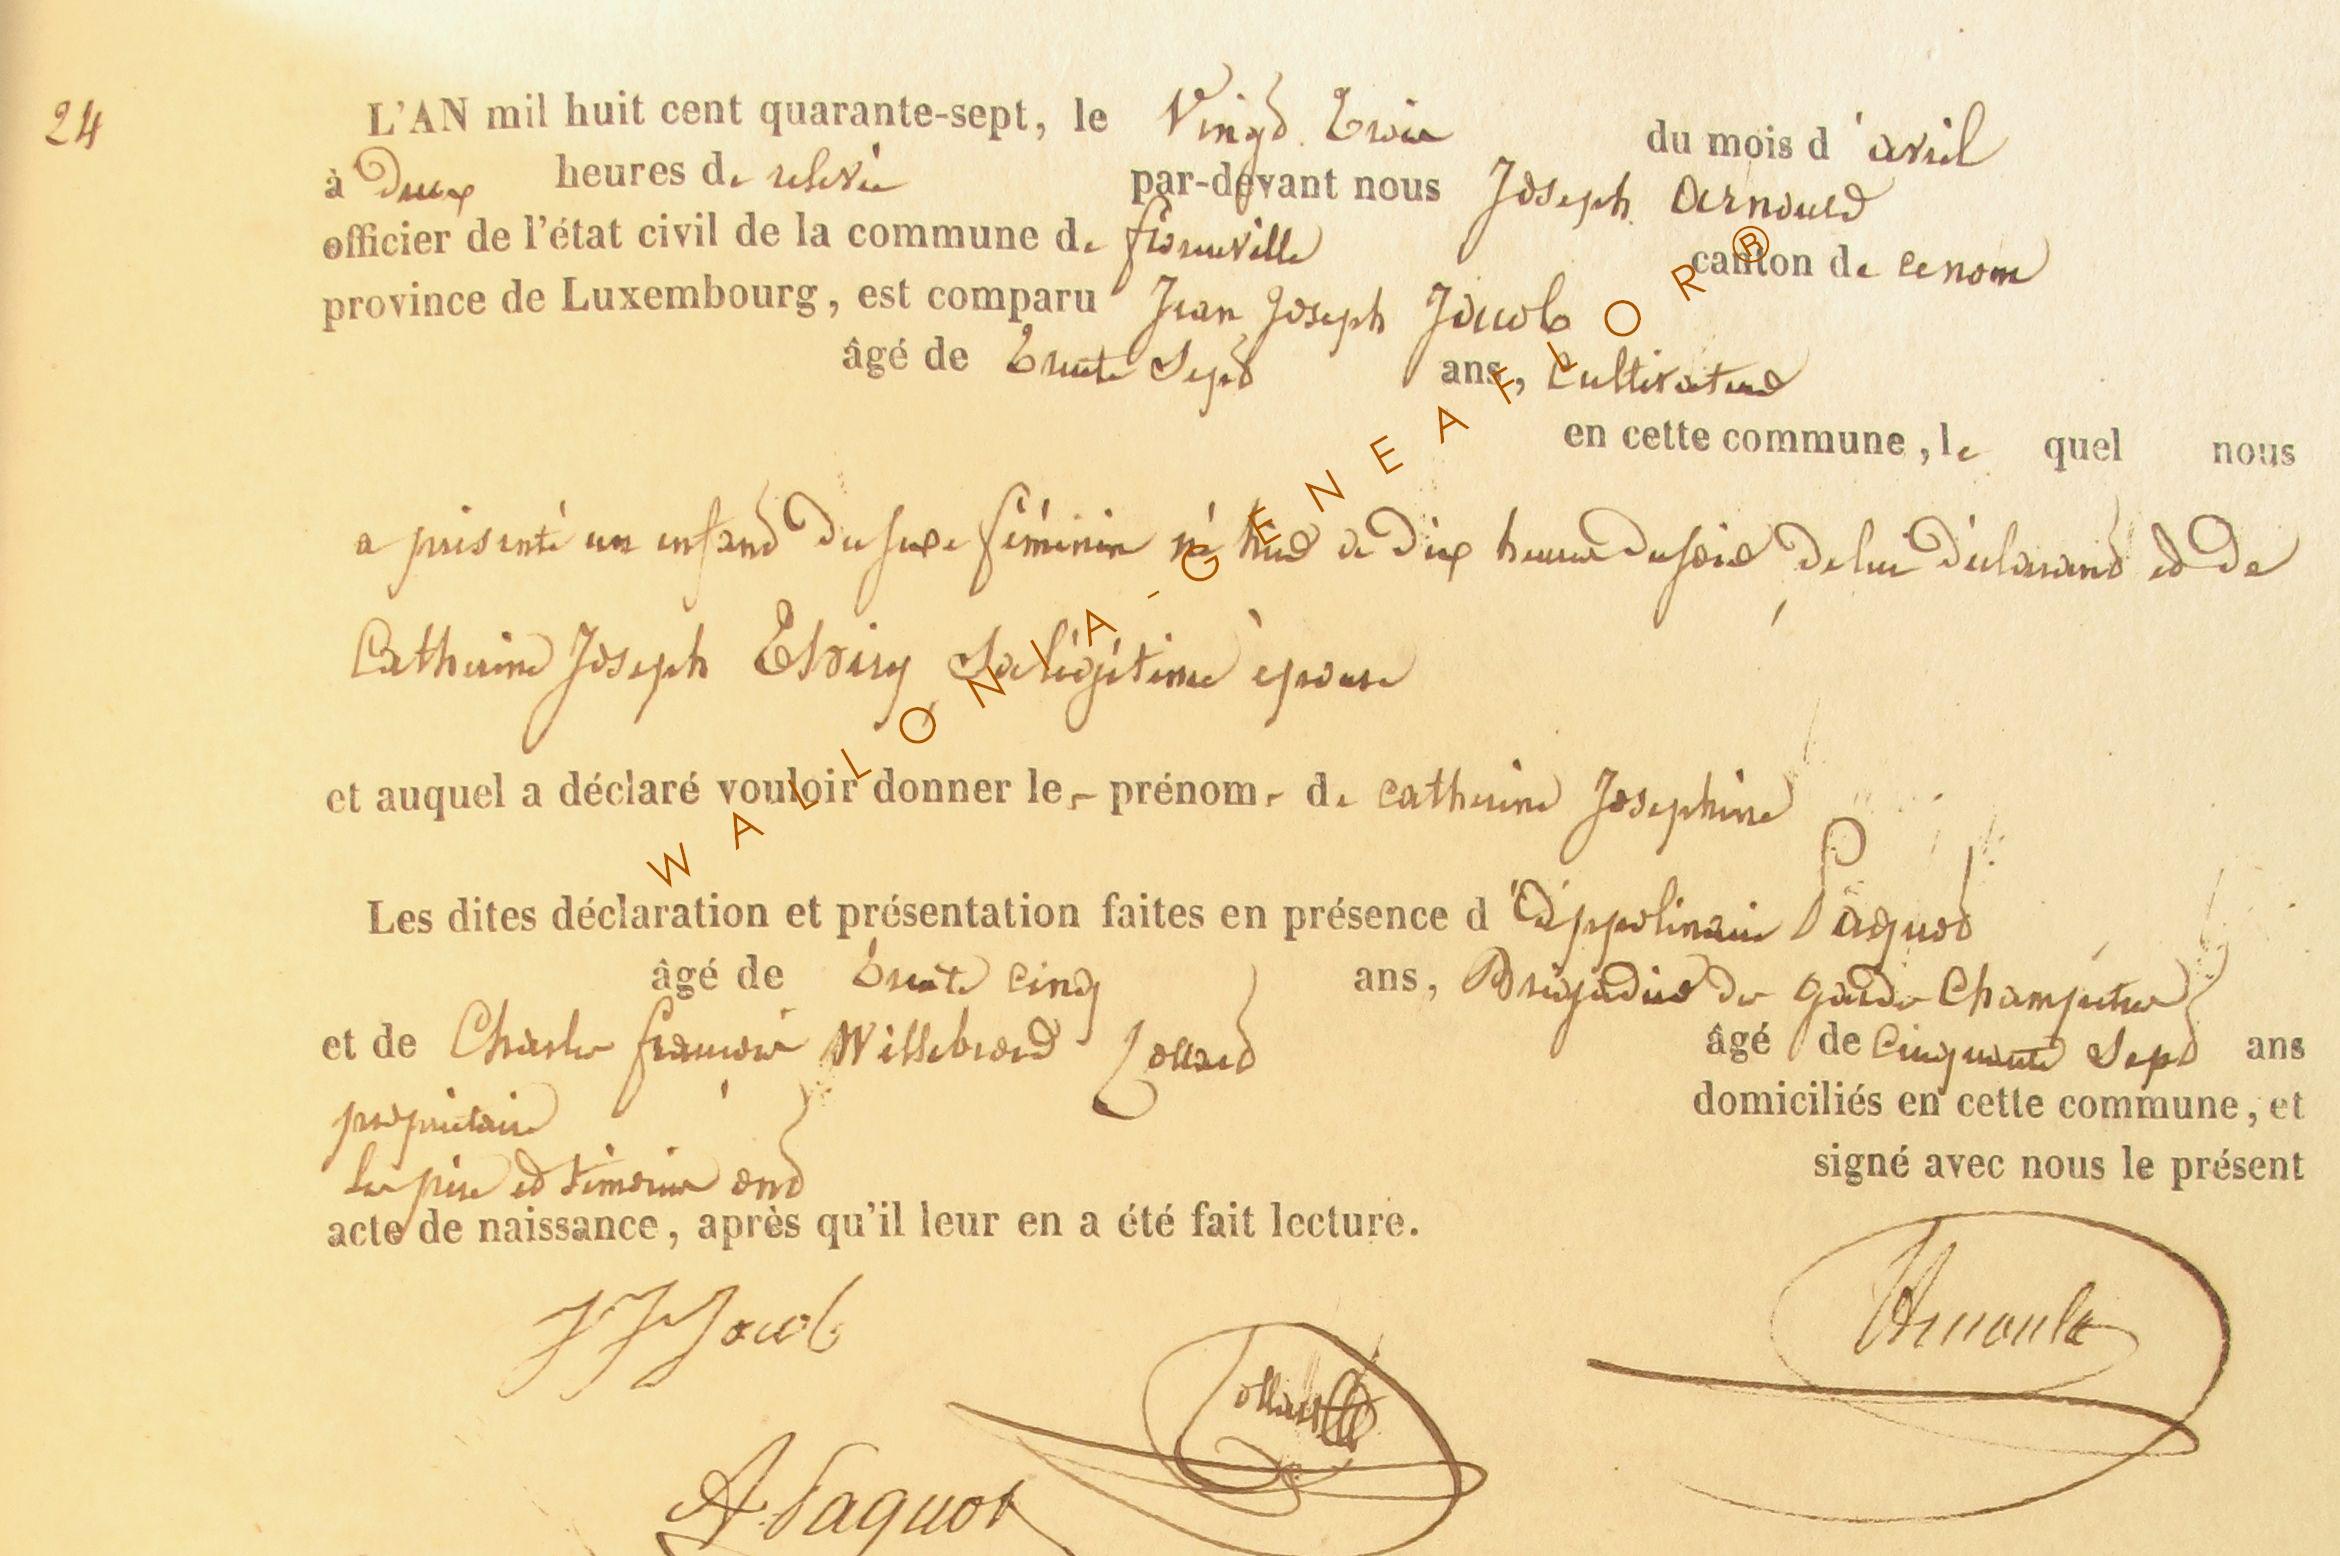 24
L'AN mil huit cent quarante-sept, le Vingt trois du mois d'avril
à deux heures de relevée par-devant nous Joseph Arnould
officier de l'état civil de la commune de florenville canton de ce nom
province de Luxembourg, est comparu Jean Joseph Jacob
âgé de trente Sept ans, Cultivateur
en cette commune, le quel nous
a présenté un enfant du sexe féminin né hier à dix heures du soir de lui déclarant et de
Catherine Joseph Sa légitime épouse
et auquel a déclaré vouloir donner les prénoms de Catherine Joséphine
Les dites déclaration et présentation faites en présence d'Appolinaire Paquot
âgé de trente cinq ans, Brigadier de gardes Champêtres
et de Charles françois Willebrord Lollard âgé de Cinquante Sept ans
propriétaire domiciliés en cette commune, et
les père et témoins ont signé avec nous le présent
acte de naissance, après qu'il leur en a été fait lecture.
JJ Jacob
Arnould
A. Paquot
WALLONIA-GENEAFLOR®